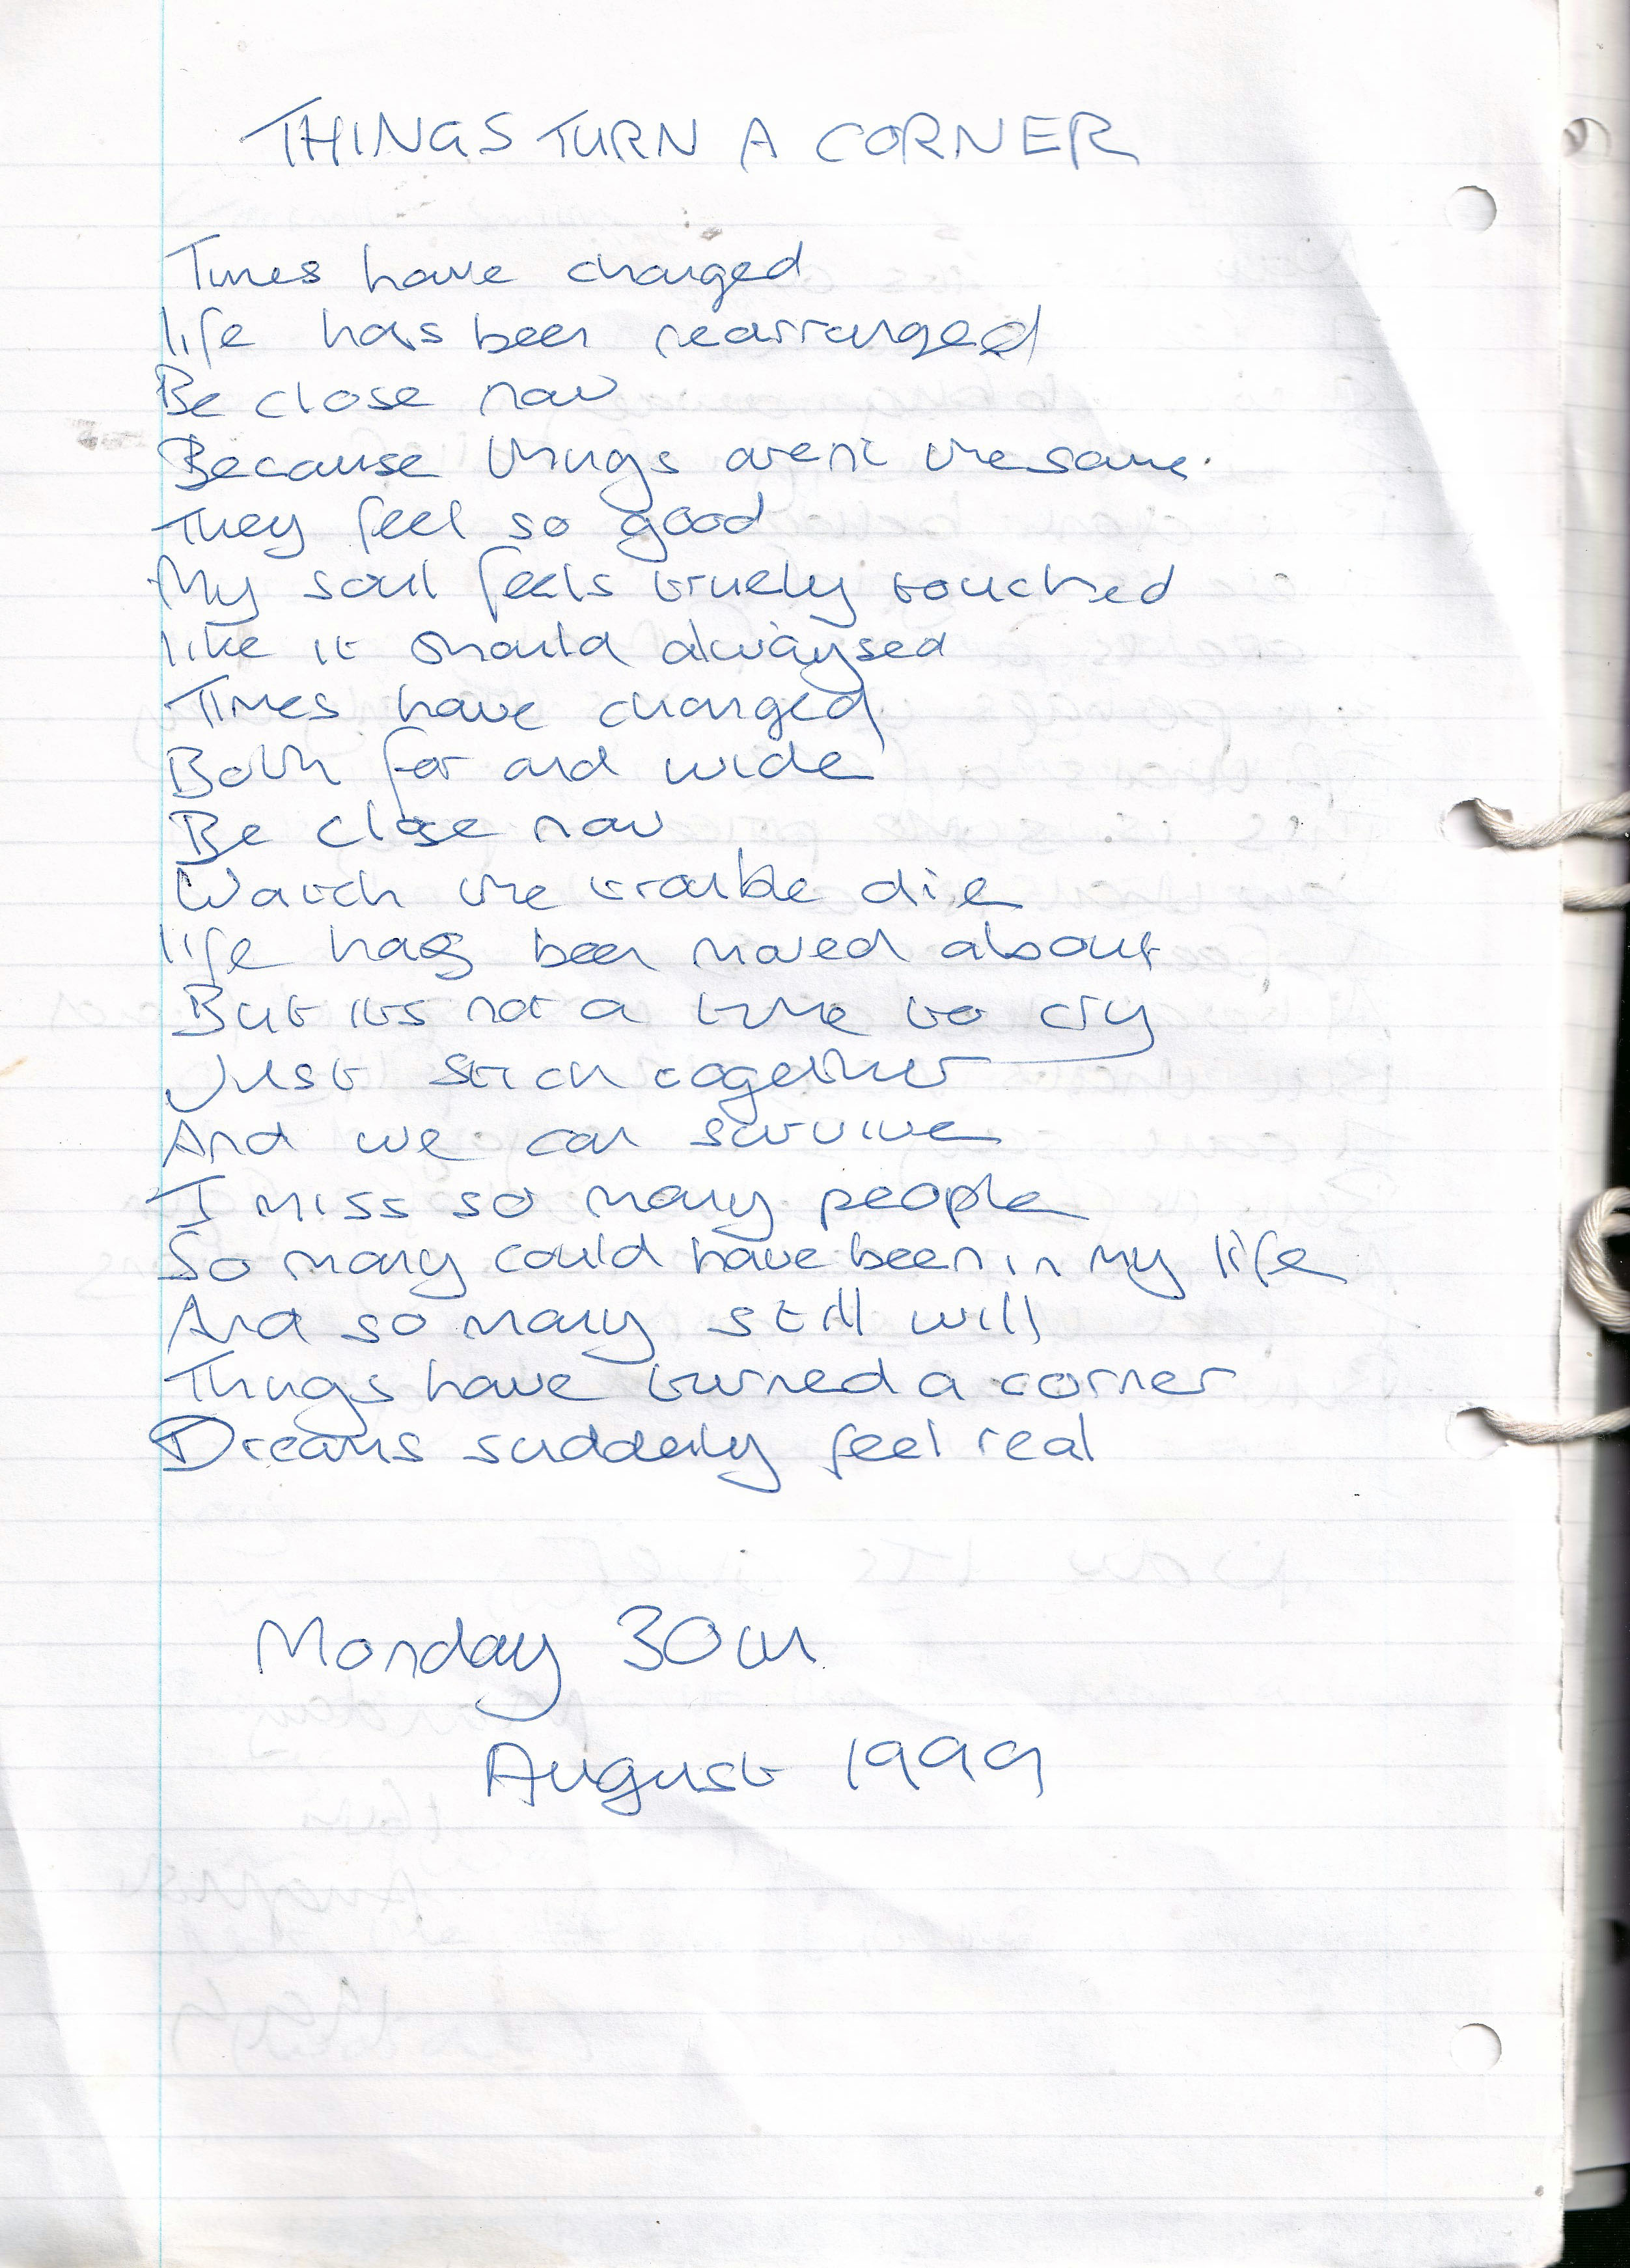 THINGS TURN A CORNER
Times have changed
life has been rearranged
Be close now
Because things aren't the same.
They feel so good
My soul feels truely touched
like it should alwaysed
Times have changed
Both far and wide
Be close now
Watch the trouble die
life has been moved about
But its not a time to cry
Just stick together
And we can survive
I miss so many people
So many could have been in my life
And so many still will
Things have turned a corner
Dreams suddenly feel real
Monday 30th
August 1999